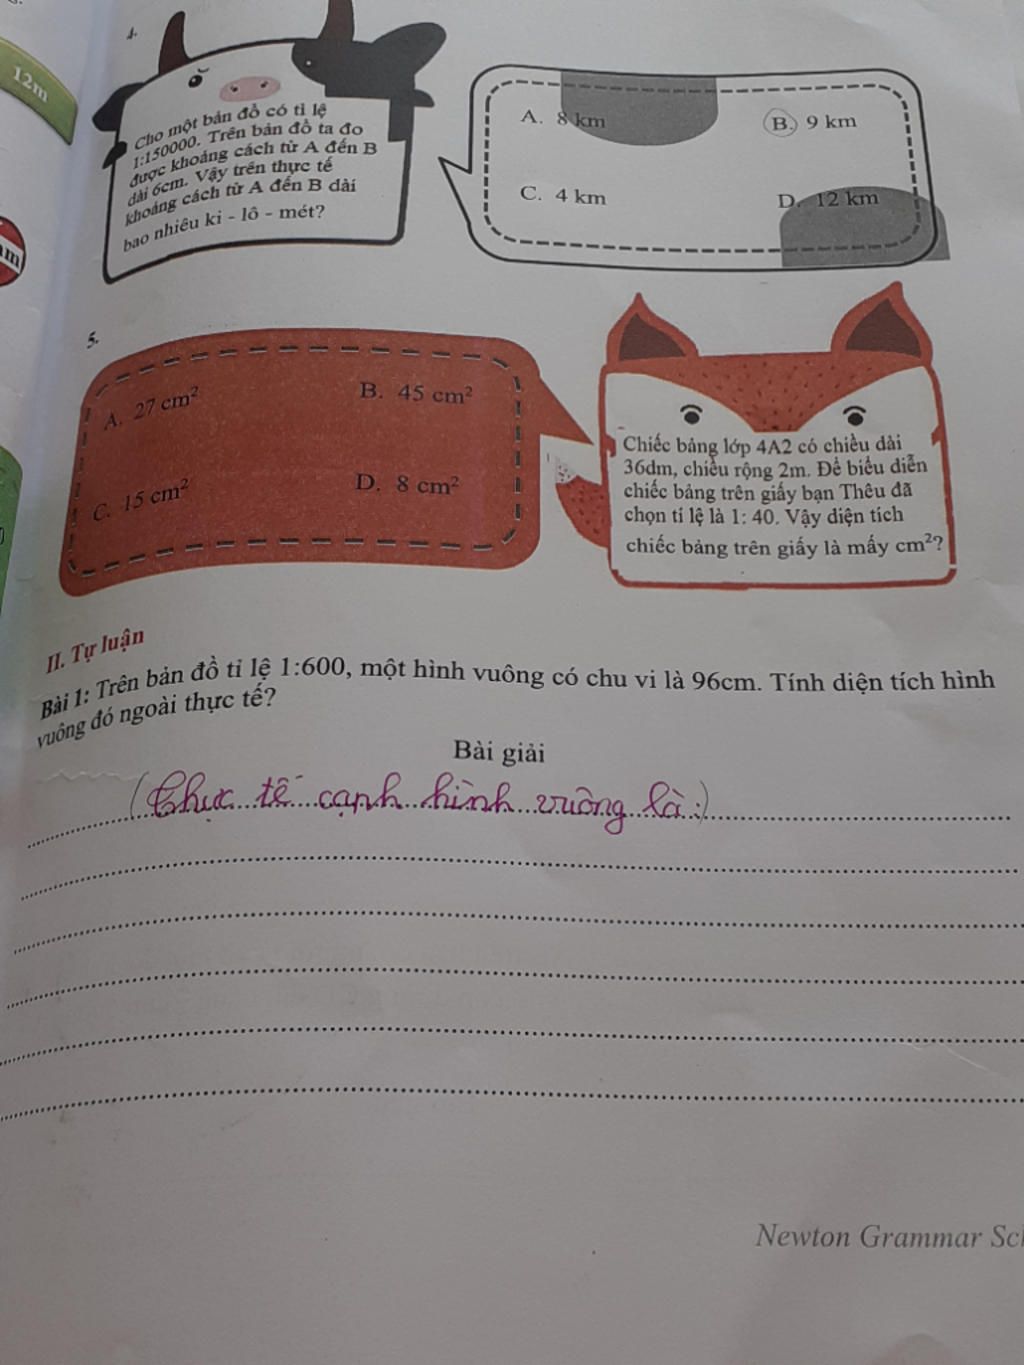 12m
m
4.
Cho một bản đồ có tỉ lệ
1:150000. Trên bản đồ ta đo
được khoảng cách từ A đến B
dài 6cm. Vậy trên thực tế
khoảng cách từ A đến B dài
bao nhiêu ki - lô - mét?
A. 8 km
B. 9 km
C. 4 km
D. 12 km
5.
A. 27 cm²
B. 45 cm²
C. 15 cm²
D. 8 cm²
Chiếc bảng lớp 4A2 có chiều dài
36dm, chiều rộng 2m. Để biểu diễn
chiếc bảng trên giấy bạn Thêu đã
chọn tỉ lệ là 1: 40. Vậy diện tích
chiếc bảng trên giấy là mấy cm²?
II. Tự luận
Bài 1: Trên bản đồ tỉ lệ 1:600, một hình vuông có chu vi là 96cm. Tính diện tích hình
vuông đó ngoài thực tế?
Bài giải
(Thực tế cạnh hình vuông là:)
Newton Grammar Scl